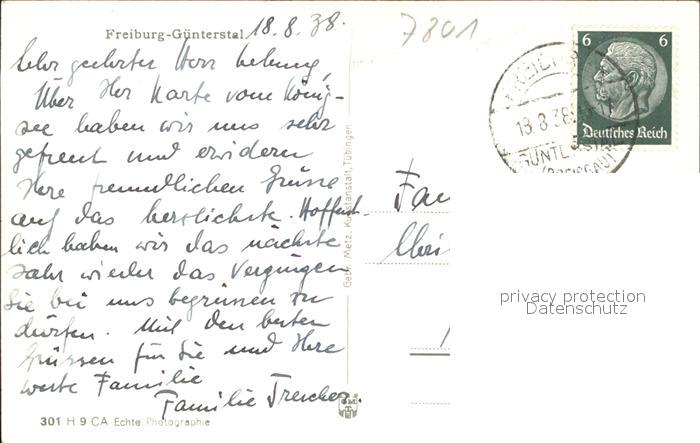 Freiburg-Günterstal, 18. 8. 38.
7801
Sehr geehrter Herr
Über Ihre Karte vom König-
see haben wir uns sehr
gefreut und erwidern
Ihre freundlichen Grüsse
auf das herzlichste. Hoffent-
lich haben wir das nächste
Jahr wieder das Vergnügen
Sie bei uns begrüssen zu
dürfen. Mit den besten
Grüssen für Sie und Ihre
werte Familie
Familie
301 H 9 CA Echte Photographie
Gebr. Metz, Kunstanstalt, Tübingen
6 6
Deutsches Reich
18.8.38
privacy protection
Datenschutz